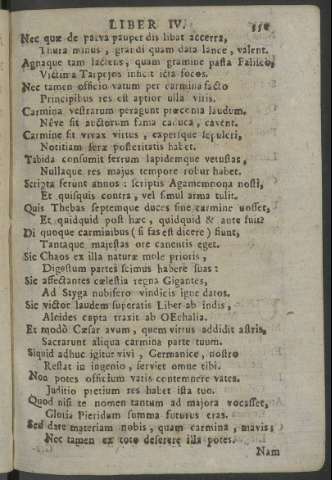 LIBER IV.
Nec quæ de parva pauper dis libat accerra,
Thura minus, grandi quam data lance, valent.
Agnaque tam lactens, quam gramine pasta Falisco,
Victima Tarpejos inficit icta focos.
Nec tamen officio vatum per carmina facto
Principibus res est aptior ulla viris.
Carmina vestrarum peragunt præconia laudum.
Neve sit auctorum fama caduca, cavent.
Carmine fit vivax virtus, expersque sepulcri,
Notitiam seræ posteritatis habet.
Tabida consumit ferrum lapidemque vetustas,
Nullaque res majus tempore robur habet.
Scripta ferunt annos: scriptus Agamemnona nosti,
Et quisquis contra, vel simul arma tulit.
Quis Thebas septemque duces sine carmine nosset,
Et quidquid post hæc, quidquid & ante fuit?
Di quoque carminibus (si fas est dicere) fiunt,
Tantaque majestas ore canentis eget.
Sic Chaos ex illa naturæ mole prioris,
Digestum partes scimus habere suas:
Sic affectantes cœlestia regna Gigantes,
Ad Styga nubifero vindicis igne datos.
Sic victor laudem superatis Liber ab indis,
Alcides capta traxit ab OEchalia.
Et modò Cæsar avum, quem virtus addidit astris,
Sacrarunt aliqua carmina parte tuum.
Siquid adhuc igitur vivi, Germanice, nostro
Restat in ingenio, serviet omne tibi.
Non potes officium vatis contemnere vates.
Juditio pretium res habet ista tuo.
Quod nisi te nomen tantum ad majora vocasset,
Gloria Pieridum summa futurus eras.
Sed dare materiam nobis, quam carmina, mavis;
Nec tamen ex toto deserere illa potes.
Nam